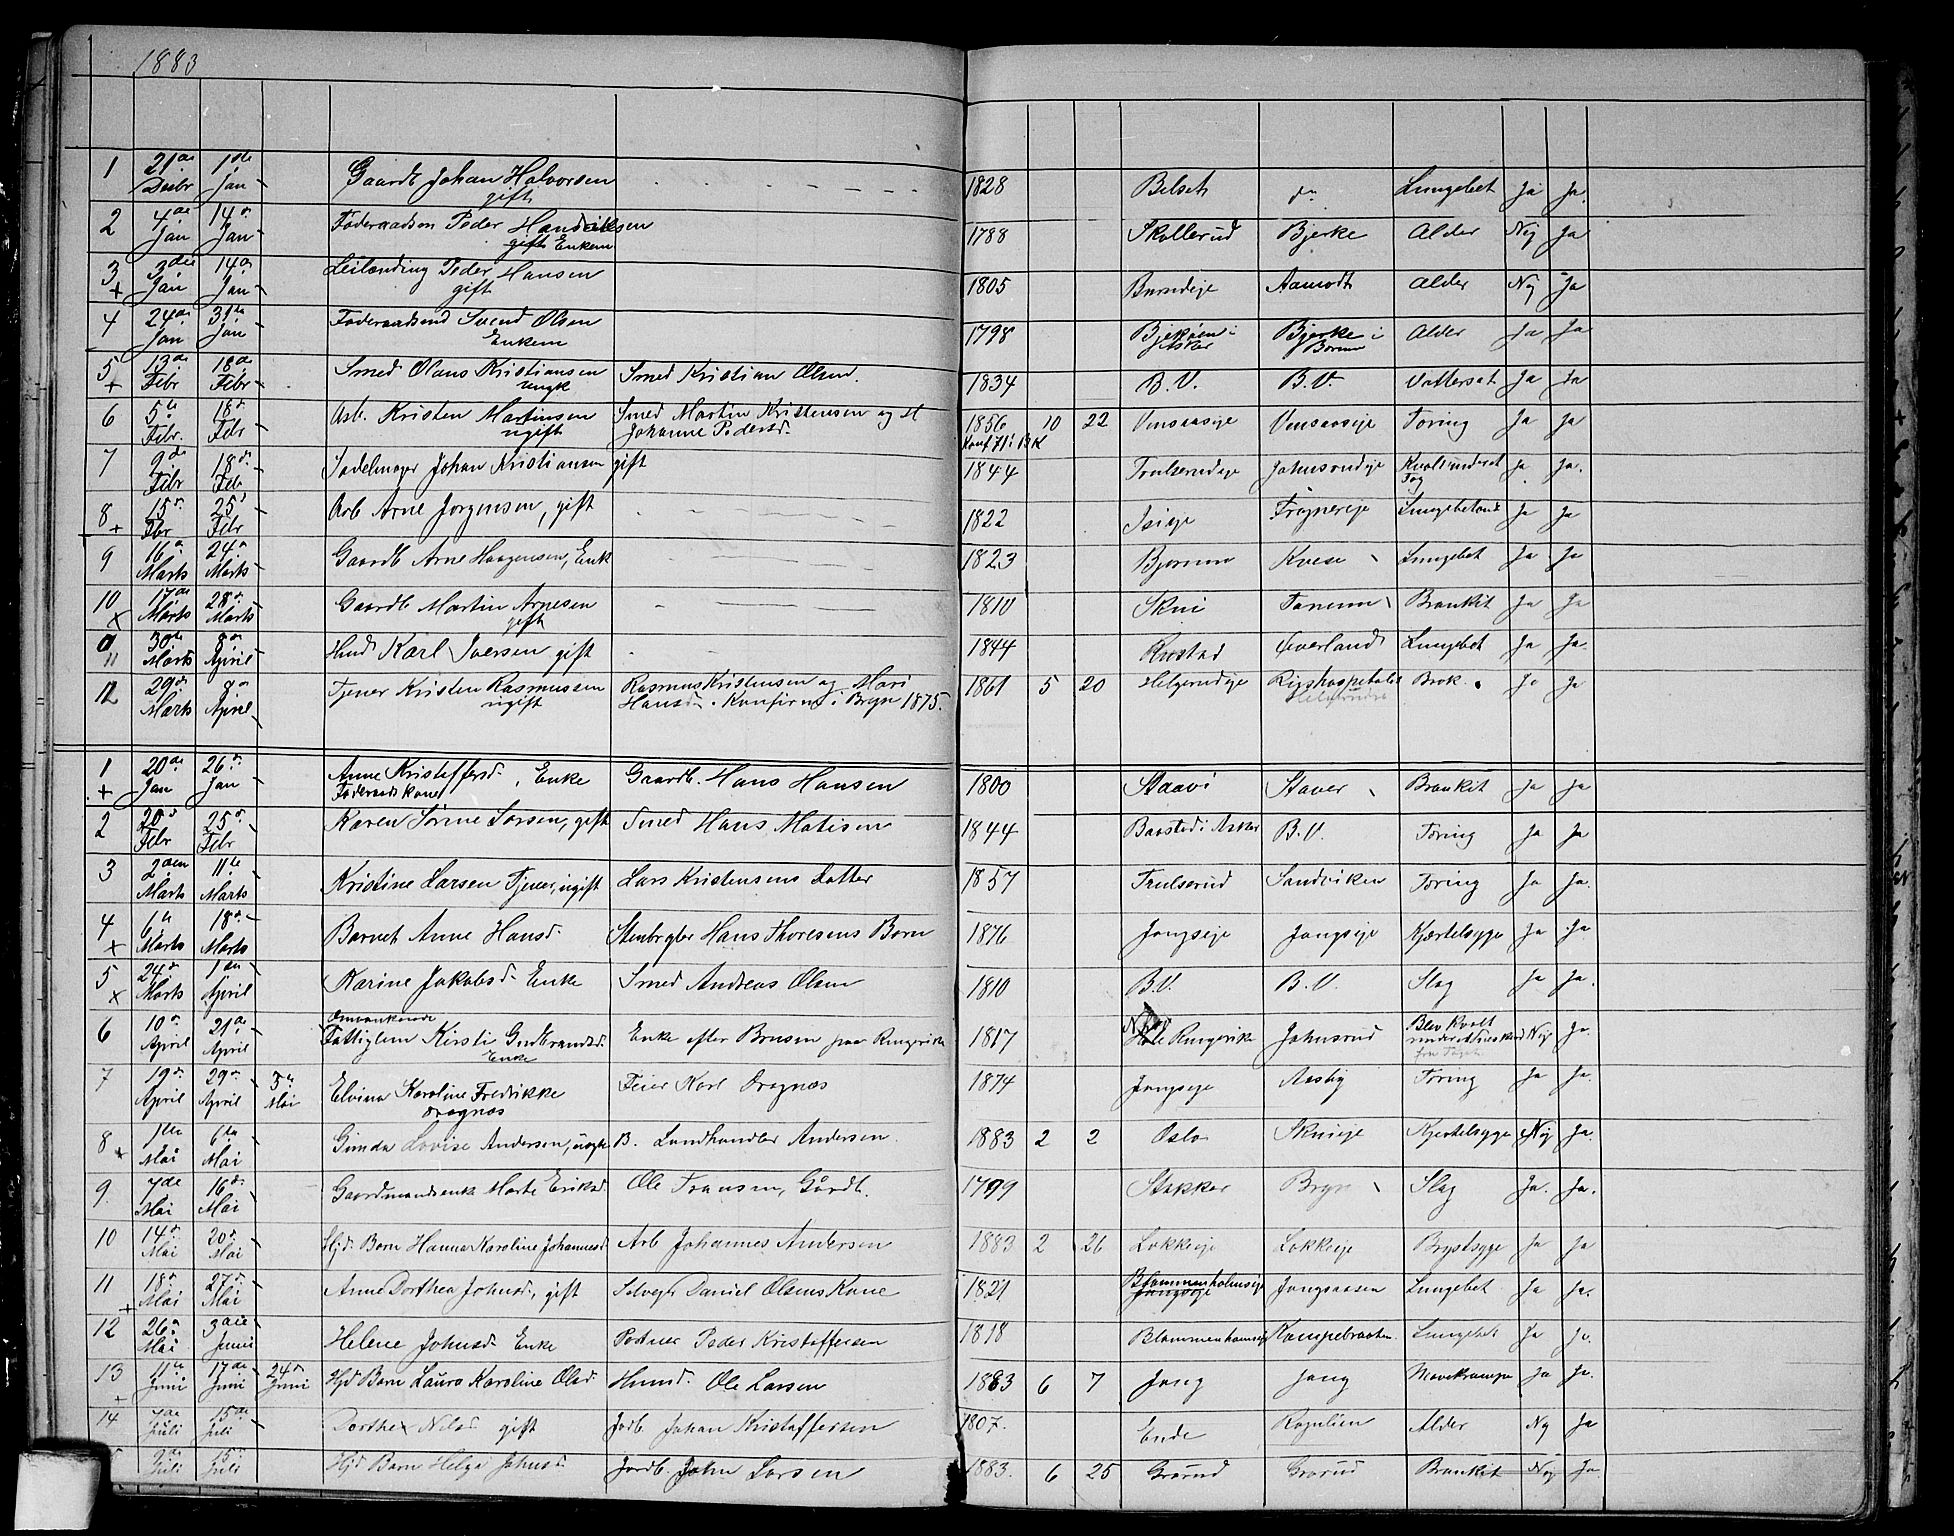 1883
1 21de Decbr 1ste Jan Gaardb Johan Halvorsen gift 1828 Belset do Lungebet Ja Ja
2 4de Jan 14de Jan Føderaadsm Peder Hendriksen gift Enkem 1788 Skollerud Bjerke Alder Nej Ja
3 + 3die Jan 14de Jan Leilending Peder Hansen gift 1805 Burudeje Aamodt Alder Nej Ja
4 24de Jan 31te Jan Føderaadsmd Svend Olsen Enkem 1798 i Asker Bjerke i Bærum Alder Ja Ja
5 + 13de Febr 18de Febr Smed Olaus Kristiansen ungk Smed Kristian Olsen. 1834 B.V. B.V. Vattersot Ja Ja
6 5te Febr. 18de Febr. Arb. Kristen Martinsen ugift Smed Martin Kristensen og H Johanne Pedersd. 1856 10 22 Vensaaseje Vensaaseje Tæring Ja Ja
Konf 71 i BK
7 9de Febr 18de Febr Sadelmager Johan Kristiansen gift 1844 Trulserudeje Johnsrudeje Kvalt under et Tog Ja Ja.
8 + 15de Febr 25de Febr Arb Arne Jørgensen, gift 1822 Isieje Frognereje Lungebetænd Ja Ja
9 16de Marts 24de Marts Gaardb Arne Haagensen, Enk 1823 Bjørnum Kvese Lungebet Ja Ja
10 x 17de Marts 28de Marts Gaardb Martin Arnesen gift 1810 Skui Tanum Bronkit Ja Ja
11 30te Marts 8de April Hmd Karl Iversen gift 1844 Rustad Øverland Lungebet Ja Ja.
12 29de Marts 8de April Tjener Kristen Rasmussen ugift Rasmus Kristensen og Mari Hansd. Konfirm i Bryn 1875. 1861 5 20 Helgerudeje Rigshospitalet Helgerudeje Brok. Ja Ja
1 + 20de Jan 26de Jan Anne Kristoffersd. Føderaadskone, Enke Gaardb. Hans Hansen 1800 Staavi Staver Bronkit Ja Ja
2 20de Febr 25de Febr Karen Sørine Larsen, gift Smed Hans Matisen 1844 Baastad i Asker B.V. Tæring Ja Ja
3 2den Marts 11te Marts Kristine Larsen Tjener, ugift Lars Kristensens Datter 1857 Trulserud Sandviken Tæring Ja Ja.
4 x 6te Marts 18de Marts Barnet Anne Hansd. Stenbryder Hans Thoresens Barn 1876 Jongseje Jongseje Kjertelsyge Ja Ja
5 x 24de Marts 1ste April Karine Jakobsd. Enke Smed Andreas Olsen 1810 B.V. B.V. Slag Ja Ja.
6 10de April 21de April Omvankende Fattiglem Kirsti Gudbrandsd. Enke Enke efter Brusen paa Ringerike 1817 Hole Ringerike Johnsrud Blev kvalt under et Nej Ja.
7 19de April 29de April 5te Mai Elvina Karoline Fredrikke Dragnæs Feier Karl Dragnæs 1874 Jongseje Aasby Tæring Ja Ja
8 + 1ste Mai 6te Mai Ginda Lovise Andersen, B. Landhandler Andersen. 1883 2 2 Oslo Skuieje Kjertelsyge Nej Ja.
9. 7de Mai 16de Mai Gaardmandsenke Marte Eriksd. Ole Fransen, Gårdb. 1799 Stokker Bryn Slag Ja. Ja.
10 14de Mai 20de Mai Hjd. Barn Hanna Karoline Johannesd Arb Johannes Andersen 1883 2 26 Løkkeeje Løkkeeje Brystsyge Ja Ja
11 + 18de Mai 27de Mai Anne Dorthea Johnsd., gift Selvejer Daniel Olsens Kone 1821 Blommenholmseje Jongseje Jongsaasen Lungebet Ja Ja.
12 26de Mai 3die Juni Helene Johnsd. Enke Peder Kristoffersen 1818 Blommenholmseje Kampebraaten Lungebet Ja Ja.
13 11te Juni 17de Juni 24de Juni Hjd Barn Laura Karoline Olsd. Husmd. Ole Larsen 1883 6 7 Jong Jong Mavekrampe Ja Ja.
14 7de Juli 15de Juli Dorthe Nilsd gift Jordb. Johan Kristoffersen 1807. Ende Alder Nej Ja
9de Juli 15de Juli Hjd Barn Helga Johnsd Jordb. John Larsen 1883. 6 25 Grorud Grorud Bronkit Nej Ja